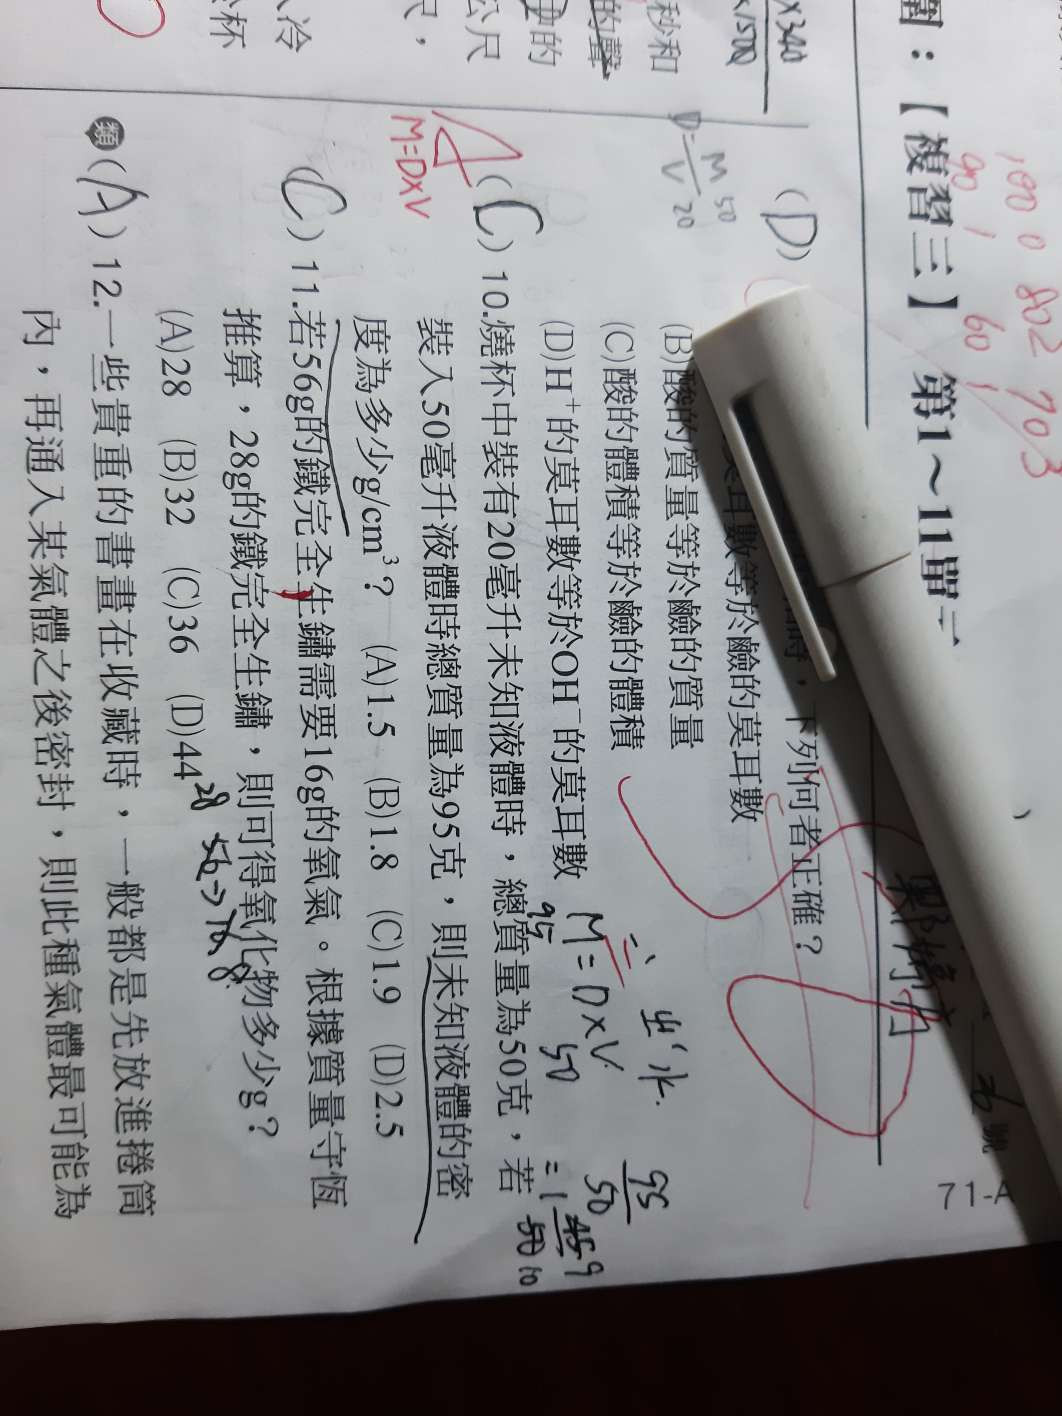 圍：【複習三】第1～11單元
71-A
100 0 802 703
90 1 60 1
x340
x1500
秒和
的聲
的
公尺
尺，
冷
杯
(D)
時，下列何者正確？
莫耳數等於鹼的莫耳數
(B)酸的質量等於鹼的質量
(C)酸的體積等於鹼的體積
(D)H⁺的莫耳數等於OH⁻的莫耳數
D=M/V
50
20
M=D×V
95
50
95
50
=1 45 9
50 10
(C)10.燒杯中裝有20毫升未知液體時，總質量為50克，若
裝入50毫升液體時總質量為95克，則未知液體的密
度為多少g/cm³？ (A)1.5 (B)1.8 (C)1.9 (D)2.5
M=D×V
(C)11.若56g的鐵完全生鏽需要16g的氧氣。根據質量守恆
推算，28g的鐵完全生鏽，則可得氧化物多少g？
(A)28 (B)32 (C)36 (D)44
28
8
類(A)12.一些貴重的書畫在收藏時，一般都是先放進捲筒
內，再通入某氣體之後密封，則此種氣體最可能為